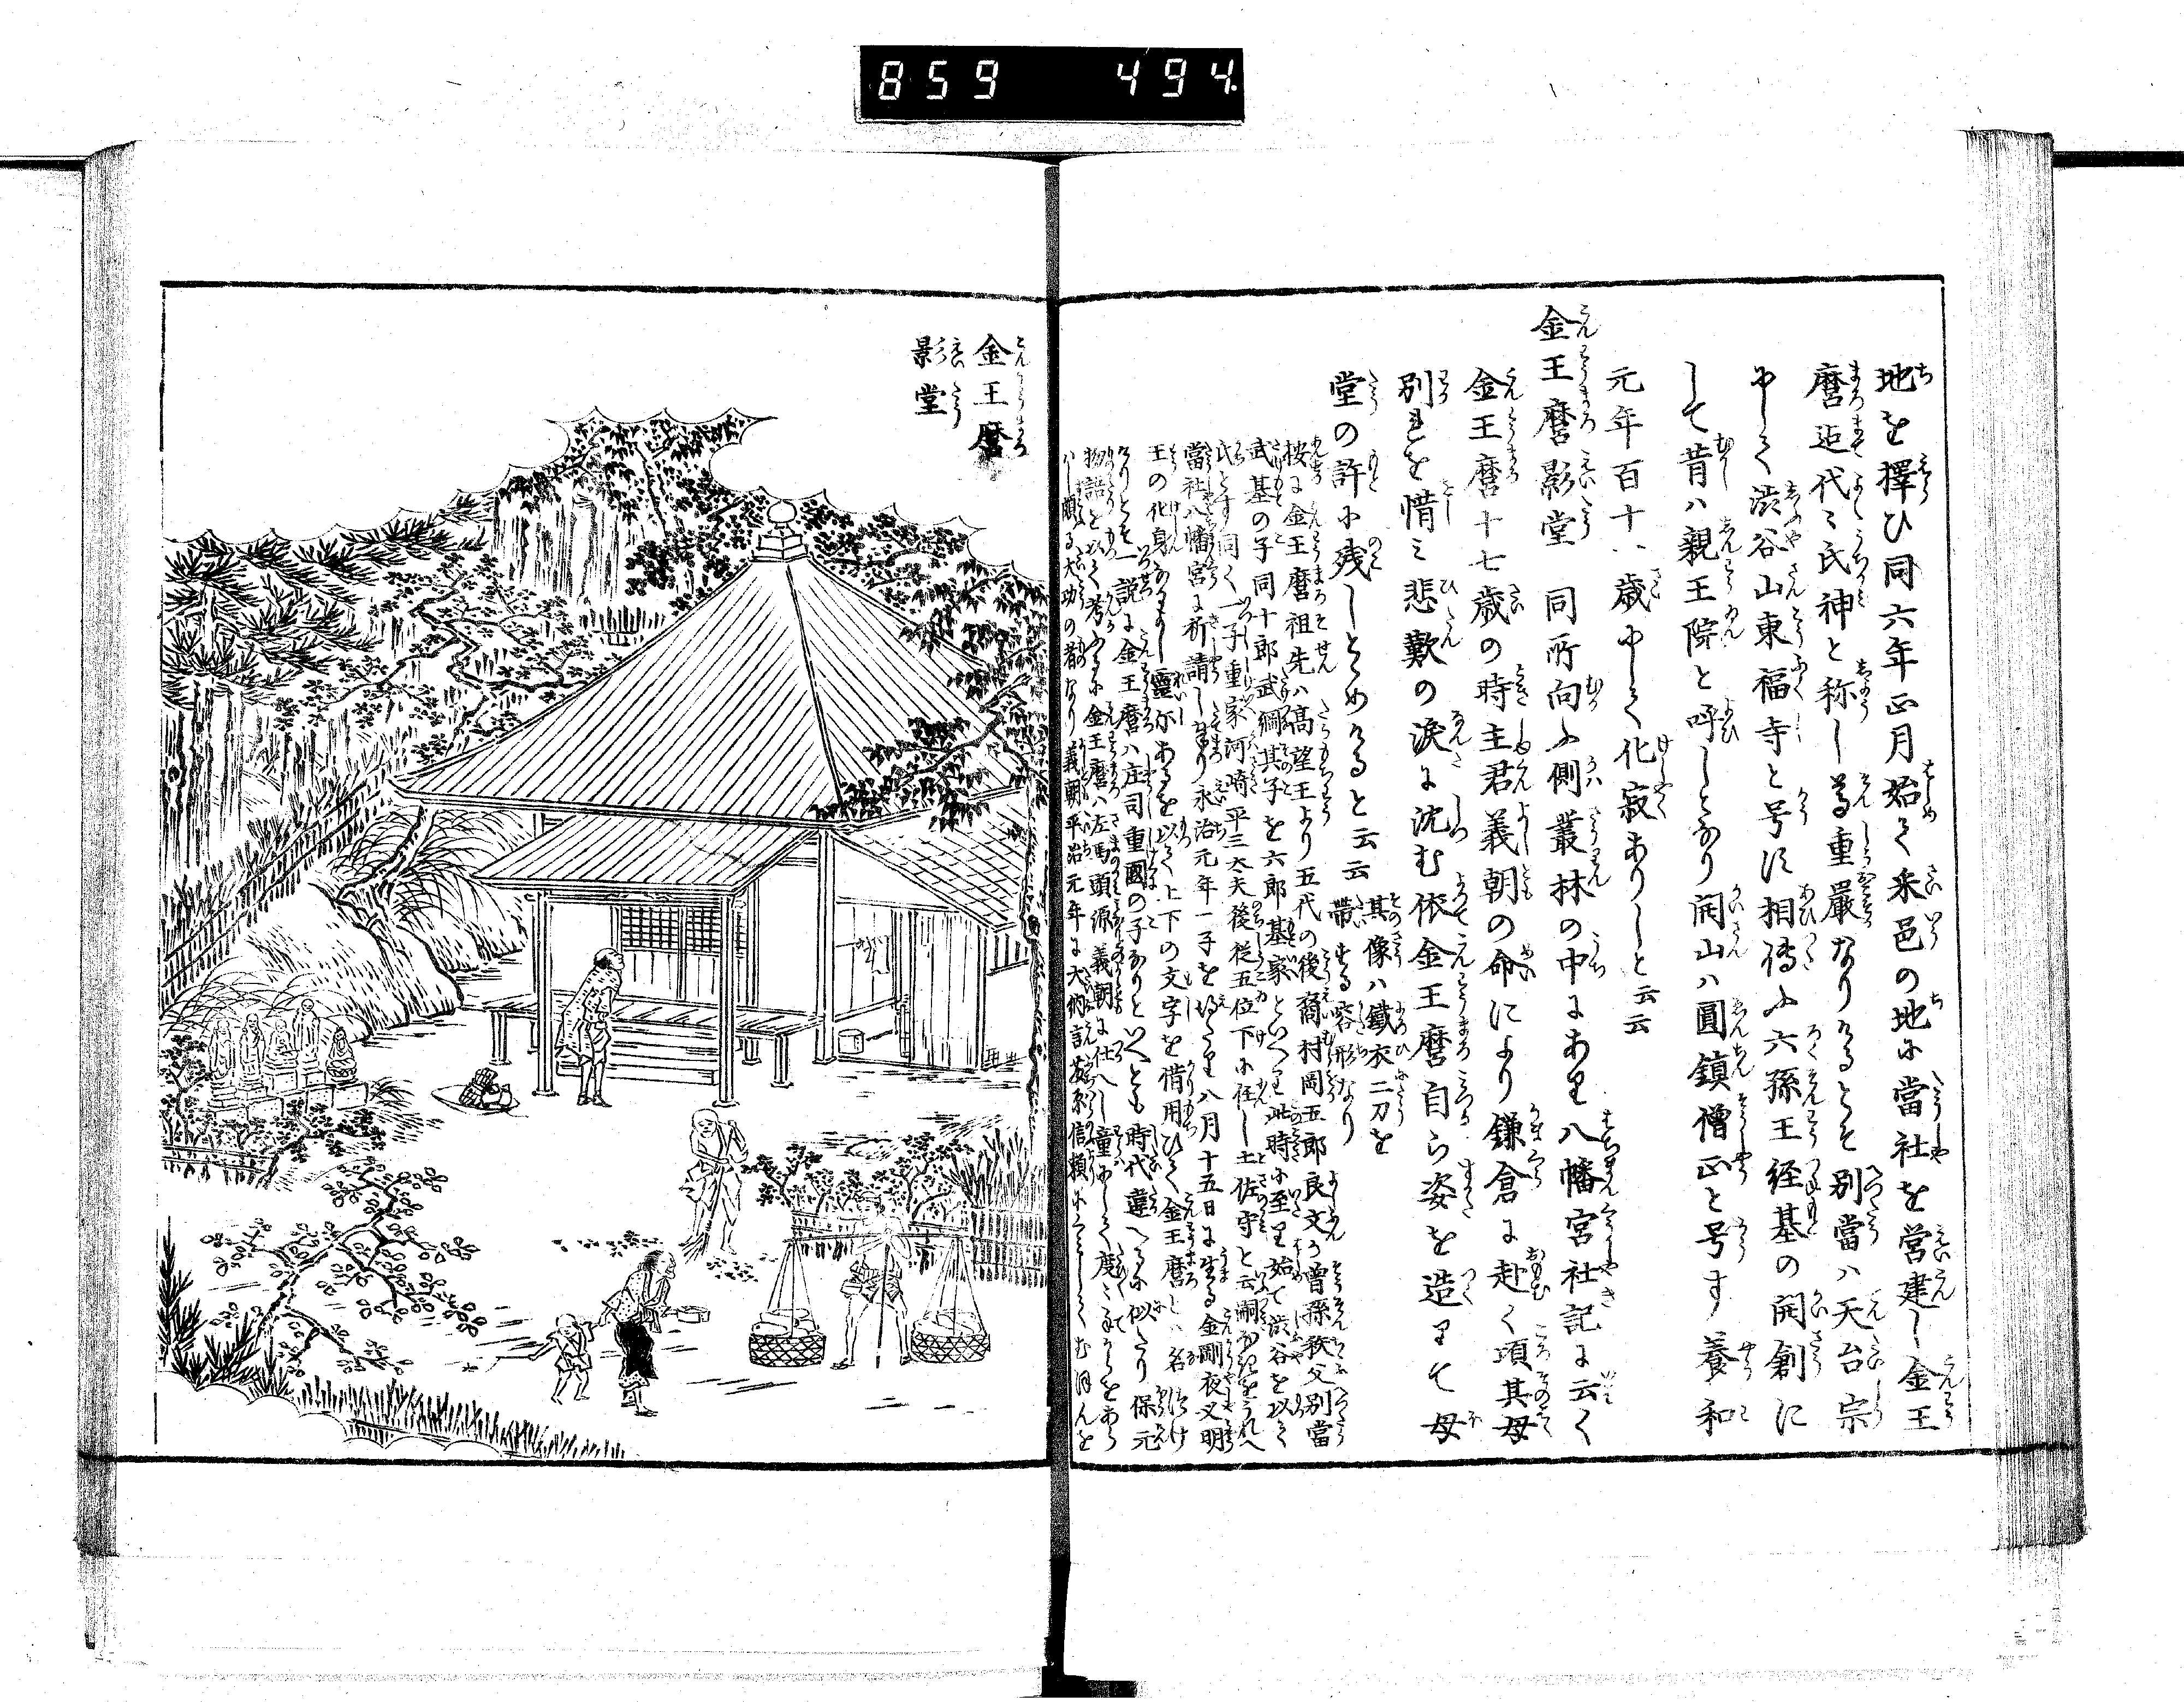 859 494
地を擇ひ同六年正月始て釆邑の地に當社を營建し金王
麿迄代々氏神と称し尊重嚴なりけるとそ別當ハ天台宗
にして渋谷山東福寺と号す相傳ふ六孫王経基の開創に
して昔ハ親王院と呼しとなり開山ハ圓鎮僧正と号す養和
元年百十八歳にして化寂ありしと云云
金王麿影堂 同所向ふ側叢林の中にあり八幡宮社記に云く
金王麿十七歳の時主君義朝の命により鎌倉に赴く頃其母
別れを惜ミ悲歎の涙に沈む依金王麿自ら姿を造りて母
堂の許に残しとゝめけると云云 其像ハ鐵衣二刀を
帶せる容形なり
按に金王麿祖先ハ高望王より五代の後裔村岡五郎良文の曽孫秩父別當
武基の子同十郎武綱其子を六郎基家といへり此時に至り始て渋谷を以て
氏とす同く一子重家河崎平三大夫後従五位下に任し土佐守と云嗣なきをうれへ
當社八幡宮に祈請し奉り永治元年一子を得たり八月十五日に生る金剛夜叉明
王の化身なるよし靈示あるを以て上下の文字を借用ひて金王麿と名つけ
なりとそ一説に金王麿ハ庄司重國の子なりといへとも時代違へるに似たり保元
物語を以て考ふるに金王麿ハ左馬頭源義朝に仕へし童にして度々
頗る大功の者なり義朝平治元年に大納言藤原信頼に
金王麿
影堂